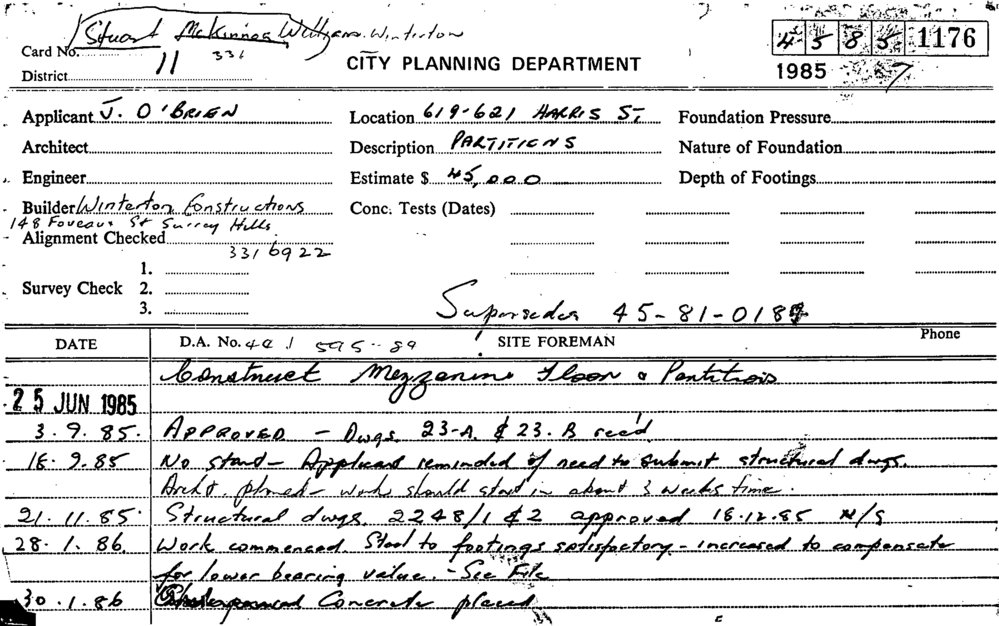 Stuart McKinnon Williams. Winterton
Card No. 331
District 11
CITY PLANNING DEPARTMENT
45 85 1176
1985 7
Applicant J. O'BRIEN
Location 619-621 HARRIS ST,
Foundation Pressure
Architect
Description PARTITIONS
Nature of Foundation
Engineer
Estimate $ 45,000
Depth of Footings
Builder Winterton Constructions
148 Foveaux St Surrey Hills
Conc. Tests (Dates)
Alignment Checked
331 6922
1.
Survey Check 2.
3.
Supersedes 45-81-018
DATE
D.A. No. 44 595-89
SITE FOREMAN
Phone
Construct Mezzanine Floor & Partitions
25 JUN 1985
3.9.85. APPROVED - Dwgs. 23-A. & 23.B recd
18.9.85 No start - Applicant reminded of need to submit structural dwgs.
Archt. phoned - work should start in about 3 weeks time.
21.11.85. Structural dwgs. 2248/1 & 2 approved 18.12.85 N/S
28.1.86. Work commenced. Steel to footings satisfactory - increased to compensate
for lower bearing value. - See File
30.1.86 Concrete placed